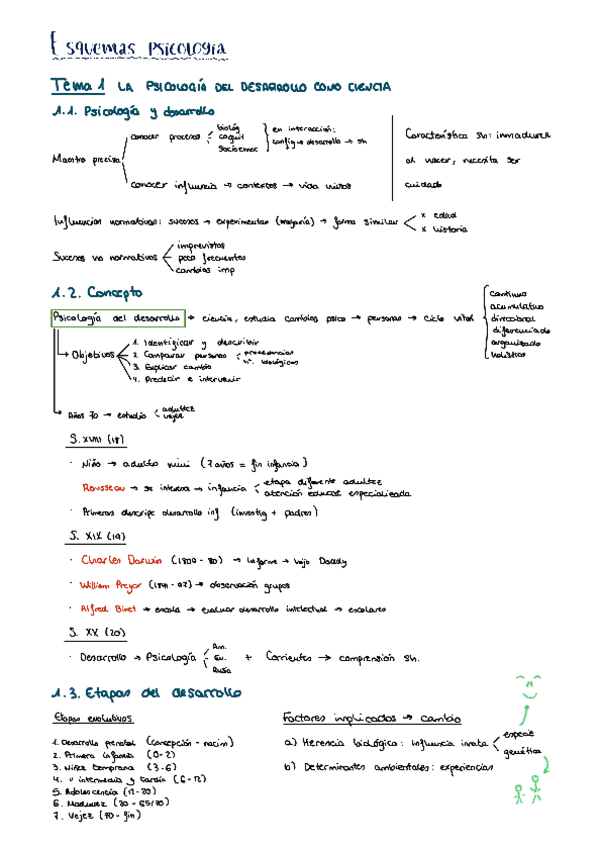 Esquemas Psicología
Tema 1 LA PSICOLOGÍA DEL DESARROLLO COMO CIENCIA
1.1. Psicología y desarrollo
Maestro precisa
conocer procesos
biológ
cognit
Socioemoc
en interacción:
configura desarrollo → SH
conocer influencia → contextos → vida
Característica SH: inmadurez
al nacer, necesita ser
cuidado
Influencias normativas: sucesos → experimentar (mayoría) → forma similar
x edad
x historia
Sucesos no normativos
imprevistos
poco frecuentes
cambios imp
1.2. Concepto
Psicología del desarrollo → ciencia, estudia cambios psico → personas → ciclo vital
continuo
acumulativo
direccional
diferenciado
organizado
holístico
Objetivos
1. Identificar y describir
2. Comparar personas
procedencias
biológicas
3. Explicar cambio
4. Predecir e intervenir
Años 70 → estudio
adultez
vejez
S. XVIII (18)
· Niño → adulto mini (7 años = fin infancia)
Rousseau → se interesa → infancia
etapa diferente adultez
atención educat especializada
· Primeras descripc desarrollo inf (investig + padres)
S. XIX (19)
· Charles Darwin (1809 - 80) → informe → hijo Doddy
· William Preyer (1841 - 97) → observación grupos
· Alfred Binet → escala → evaluar desarrollo intelectual → escolares
S. XX (20)
· Desarrollo → Psicología
Am.
Eu.
Rusia
+ Corrientes → comprensión SH.
1.3. Etapas del desarrollo
Etapas evolutivas
1. Desarrollo prenatal (concepción - nacim)
2. Primera infancia (0-2)
3. Niñez temprana (3-6)
4. " intermedia y tardía (6-12)
5. Adolescencia (12-20)
6. Madurez (20 - 65/70)
7. Vejez (70 - fin)
Factores implicados → cambio
a) Herencia biológica: influencia innata
especie
genética
b) Determinantes ambientales: experiencias